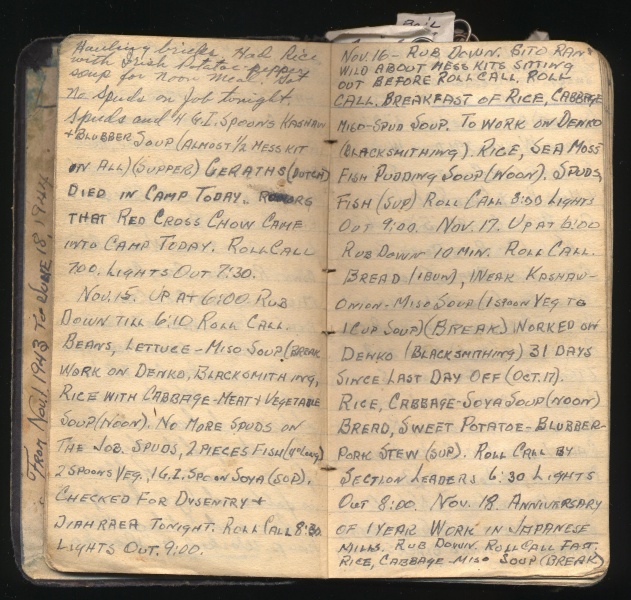 From Nov. 1943 to June 18, 1944
Hauling bricks. Had Rice
with Irish Potatoe
soup for noon meal.
No Spuds on Job tonight.
Spuds and 4 G.I. Spoons Kashaw
+ Blubber Soup (Almost 1/2 Mess kit
on All) (Supper) Geraths (Dutch)
Died in Camp Today.
that Red Cross Chow Came
into Camp Today. Roll Call
700. Lights Out 7:30.
Nov. 15. Up at 6:00 Rub
Down till 6:10 Roll Call.
Beans, Lettuce - Miso Soup (Break
Work on Denko, Blacksmithing,
Rice with Cabbage-Meat + Vegetable
Soup (Noon). No More Spuds on
the Job. Spuds, 2 Pieces Fish (4" Long)
2 Spoons Veg., 1 G.I. Spoon Soya (Sup).
Checked for Dysentry +
Diahraea Tonight. Roll Call 8:30
Lights Out. 9:00.
Nov. 16 - Rub Down. Bito Ran
Wild About Mess Kits Sitting
Out Before Roll Call. Roll
Call. Breakfast of Rice, Cabbage
Miso-Spud Soup. To Work on Denko
(Blacksmithing). Rice, Sea Moss
Fish Pudding Soup (Noon). Spuds,
Fish (Sup) Roll Call 8:30 Lights
Out 9:00. Nov. 17. Up at 6:00
Rub Down 10 Min. Roll Call.
Bread (1 Bun), Weak Kashaw-
Onion-Miso Soup (1 Spoon Veg to
1 Cup Soup) (Break) Worked on
Denko (Blacksmithing) 31 Days
Since Last Day Off (Oct. 17).
Rice, Cabbage-Soya Soup (Noon)
Bread, Sweet Potatoe-Blubber-
Pork Stew (Sup). Roll Call by
Section Leaders 6:30 Lights
Out 8:00. Nov. 18. Anniversary
of 1 Year Work in Japanese
Mills. Rub Down. Roll Call Fast.
Rice, Cabbage-Miso Soup (Break)